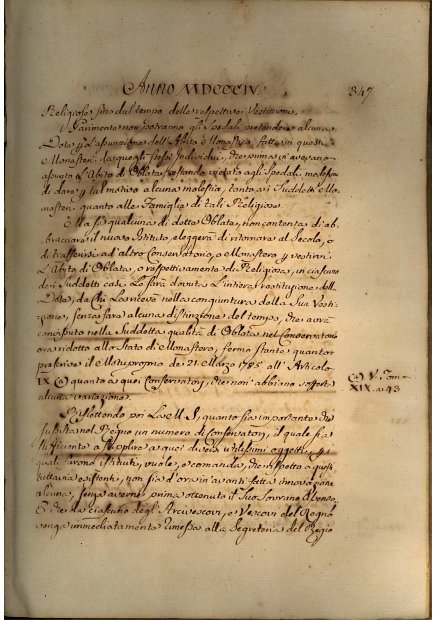 Anno MDCCCIV. 347
Religiose fino dal tempo delle respettive Vestizioni.
Parimente non potranno gli Spedali pretendere alcuna
Dote per l'assunzione dell'Abito Monastico fatta in questi
Monasteri da quegl'istessi Individui, che prima v'avevano
assunto l'Abito di Oblata, restando vietato agli Spedali medesimi
di dare per tal motivo alcuna molestia, tanto ai Suddetti Mona-
steri quanto alle Famiglie di tali Religiose.
Ma se qualcuna di dette Oblate, non contenta di ab-
bracciare il nuovo Istituto, eleggerà di ritornare al Secolo, o
di trasferirsi ad altro Conservatorio, o Monastero per vestirvi
l'Abito di Oblata, o respettivamente di Religiosa, in ciascuno
dei Suddetti casi Le sarà dovuta l'intiera restituzione della
Dote, da Chi La ricevè nella congiuntura della Sua Vesti-
zione, senza fare alcuna distinzione del tempo, che avrà
consistuto nella Suddetta qualità di Oblata nel Conservatorio
ora ridotto allo Stato di Monastero, fermo stante quanto
prescrive il Motuproprio de' 21 Marzo 1785 all'Articolo
IX (a) quanto a quei Conservatorj, che non abbiano sofferta (a) V. Tomo
alcuna variazione. XIX. a 43
Riflettendo poi La M. S. quanto sia importante che
sussista nel Regno un numero di Conservatorj, il quale sia
sufficiente a supplire a quei diversi utilissimi oggetti, per i
quali furono istituiti, vuole, e comanda, che rispetto a quei
tuttavia esistenti, non sia d'ora in avanti fatta innovazione
alcuna, senza averne prima ottenuta il Suo Sovrano Assenso,
E che da ciascuno degl'Arcivescovi, e Vescovi del Regno
venga immediatamente rimessa alla Segreteria del Regio